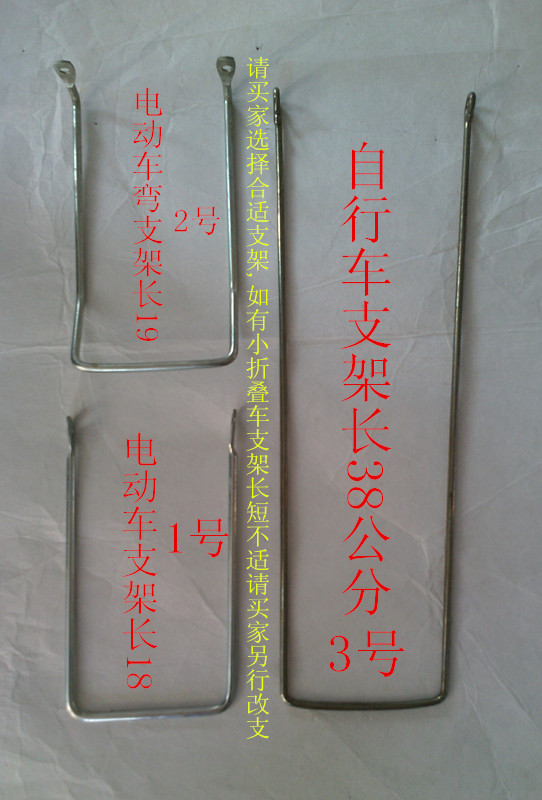 电动车弯支架长19
2号
请买家选择合适支架,如有小折叠车支架长短不适请买家另行改支
自行车支架长38公分
3号
电动车支架长18
1号